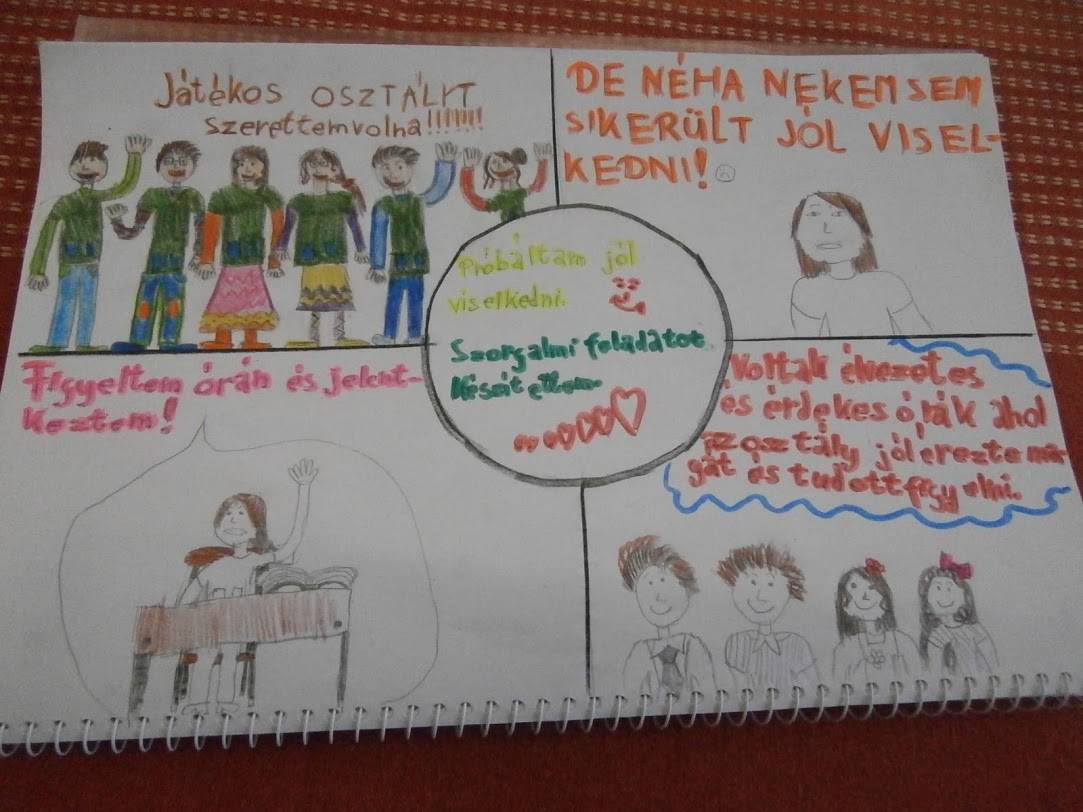 Játékos OSZTÁLYT
szerettemvolna!!!!!!!!
DE NÉHA NEKEM SEM
SIKERÜLT JÓL VISEL-
KEDNI!
Próbáltam jól
viselkedni.
Szorgalmi feladatot
készitettem.
Figyeltem órán és jelent-
keztem!
Voltak élvezetes
es érdekes órák ahol
az osztály jól erezte ma-
gát és tudott figyelni.